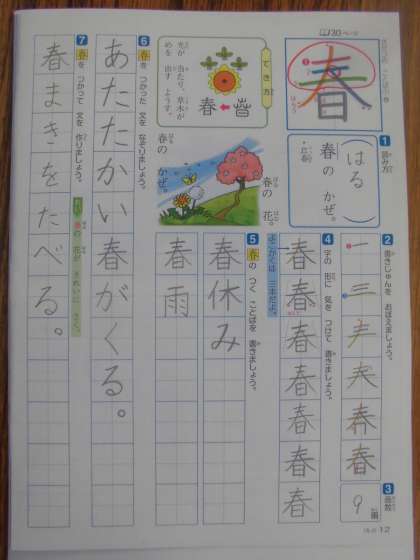 30ページ
春
はる
1 読み方
（はる）
春の かぜ。
2 書きじゅんを おぼえましょう。
一
二
春
春
3 画数
9
画
てき方
春
日が 当たり、草木が
めを 出す ようす。
春の かぜ。
春の 花。
4 字の 形に 気を つけて 書きましょう。
よこかくは 三本だよ。
春
春
春
春
春
春
春
5 春の つく ことばを 書きましょう。
春休み
春雨
6 春を つかった 文を なぞりましょう。
あたたかい春がくる。
7 春を つかって 文を 作りましょう。
れい 春の 花が きれいに さく。
春まきをたべる。
12